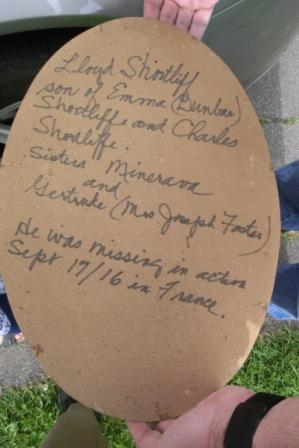 Lloyd Shortliff
son of Emma (Dunbar)
Shortliffe and Charles
Shortliffe.
Sisters Minerava
and
Gertrude (Mrs Joseph Foster)
He was missing in action
Sept 17/16 in France.